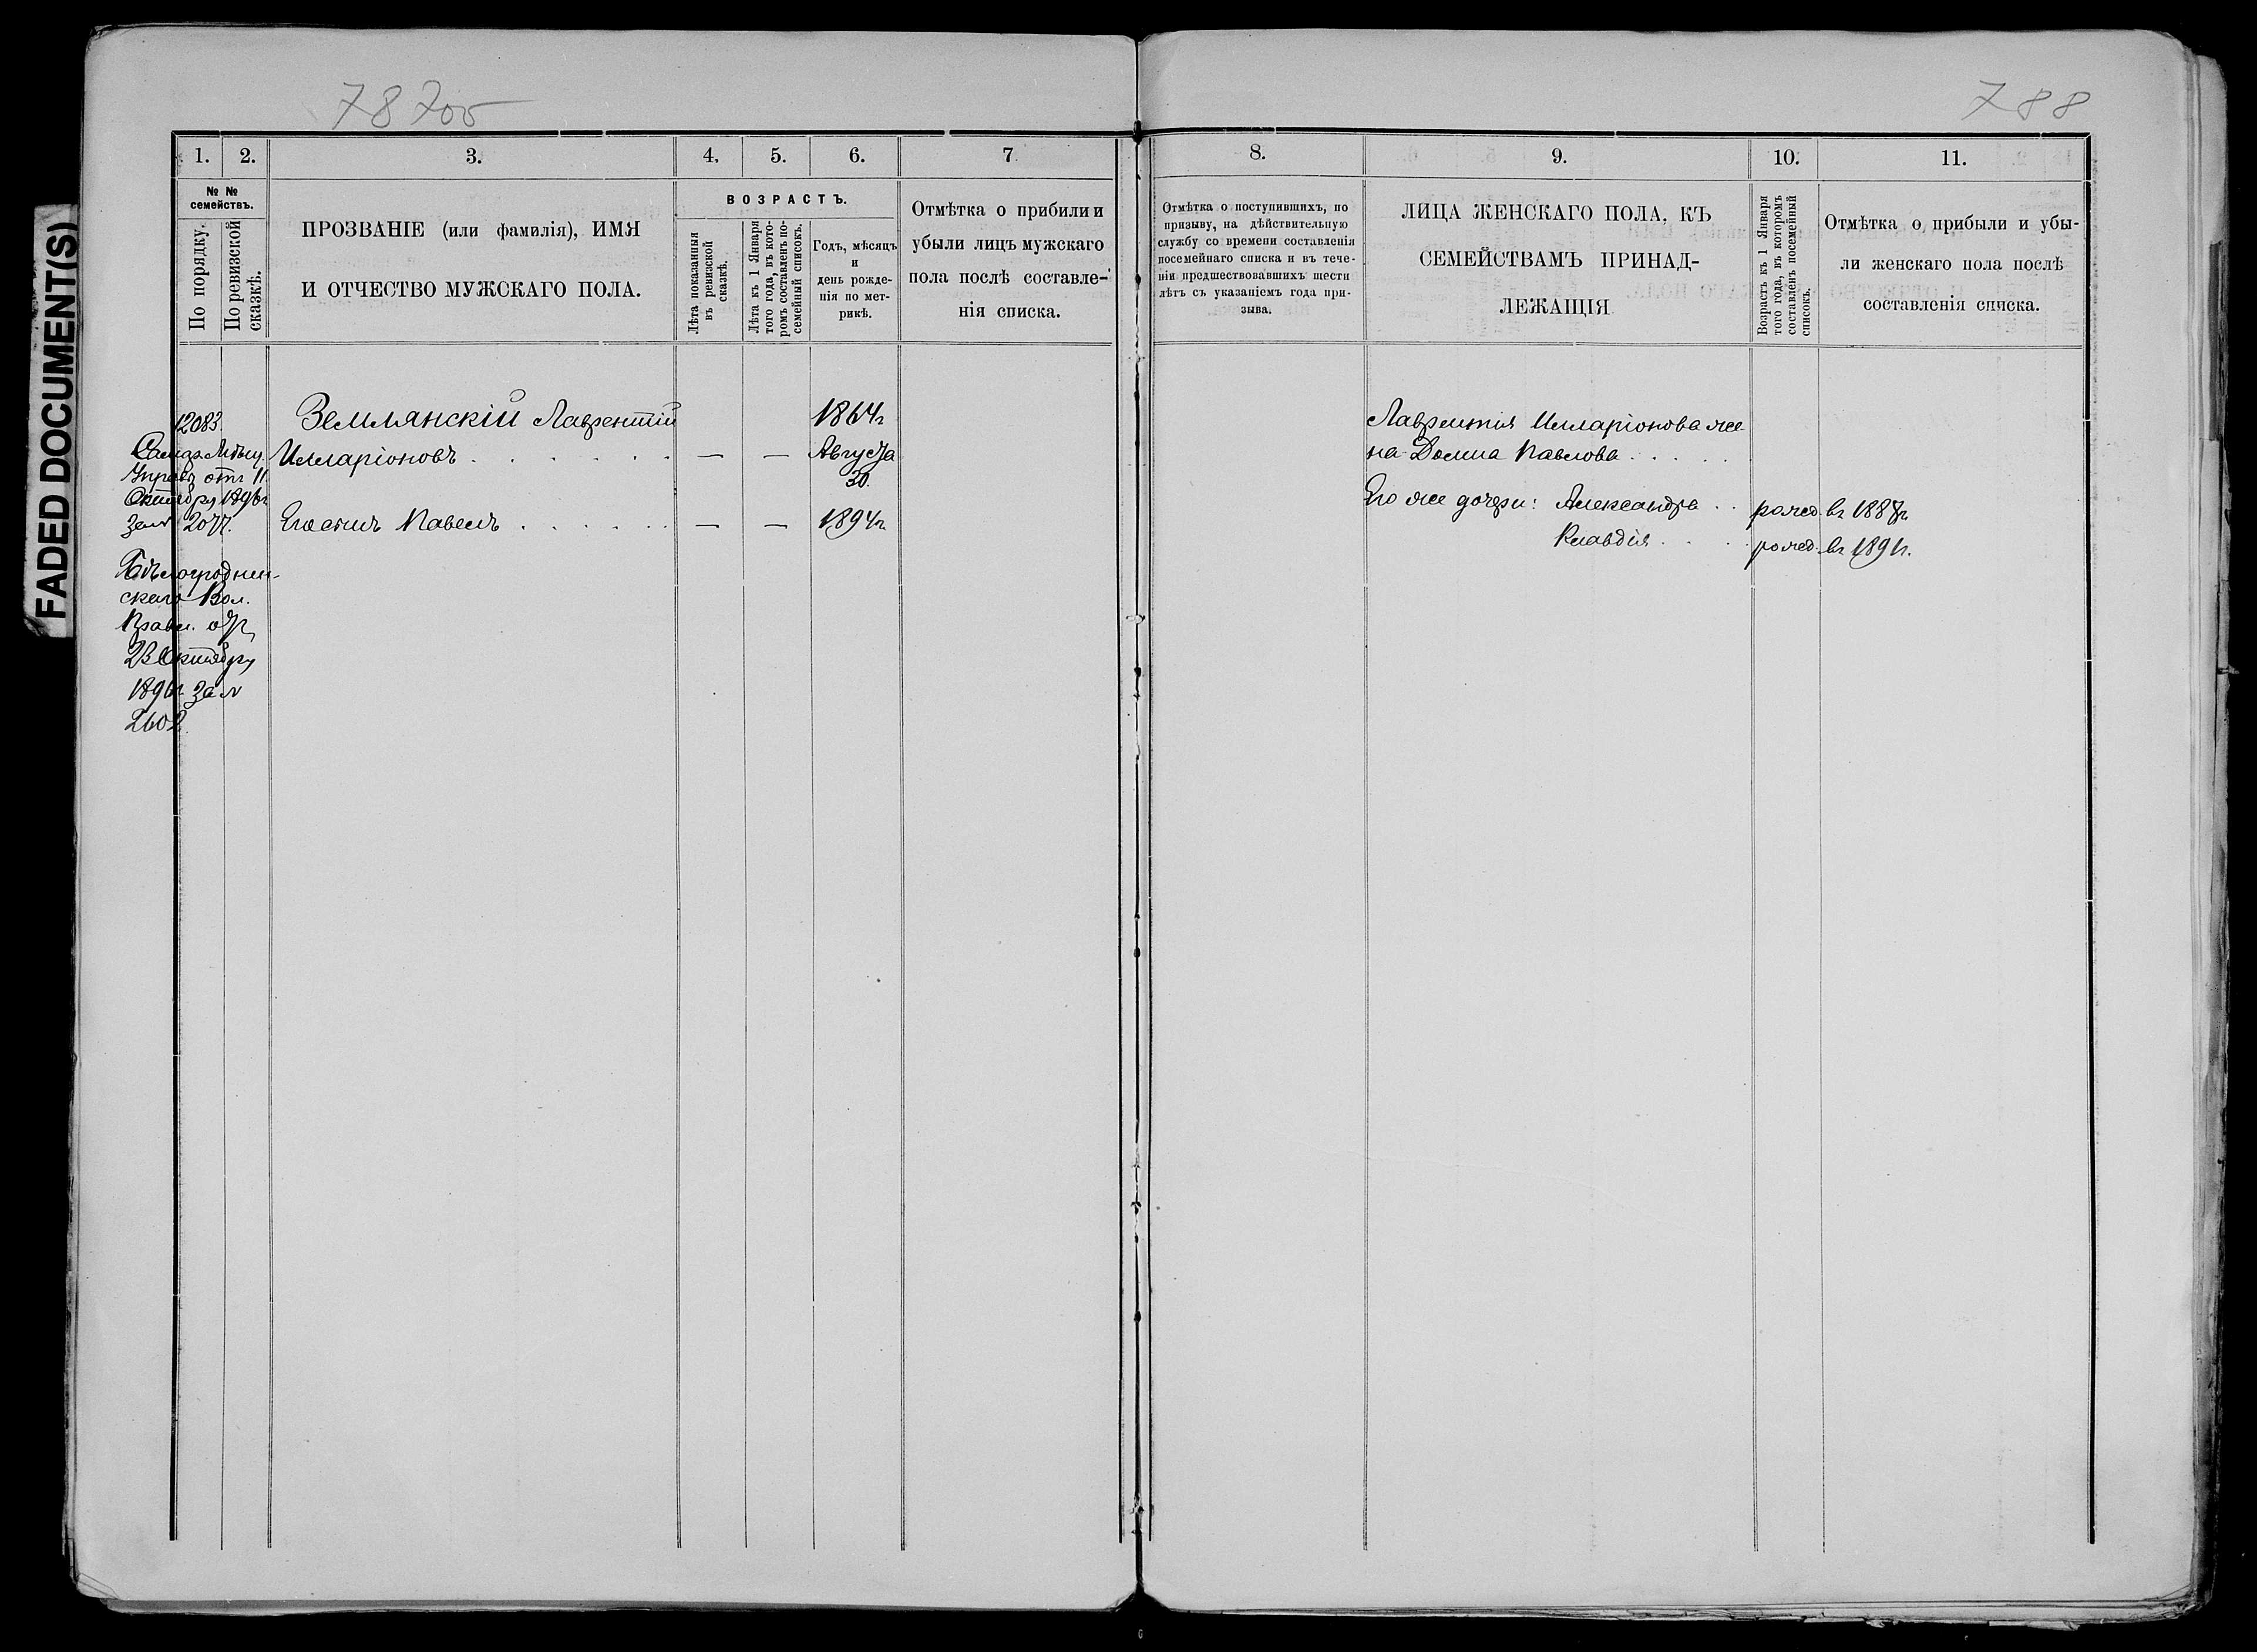 FADED DOCUMENT(S)
78 7об
1. 2. 3. 4. 5. 6. 7
№ № семействъ.
По порядку.
По ревизской сказкѣ.
ПРОЗВАНІЕ (или фамилія), ИМЯ
И ОТЧЕСТВО МУЖСКАГО ПОЛА.
ВОЗРАСТЪ.
Лѣта показанныя въ ревизской сказкѣ.
Лѣта къ 1 Января того года, въ которомъ составленъ посемейный списокъ.
Годъ, мѣсяцъ
и
день рожде-
нія по мет-
рикѣ.
Отмѣтка о прибыли и
убыли лицъ мужскаго
пола послѣ составле-
нія списка.
12083.
Самар. Мѣщ.
Управ. отъ 11
Октября 1896г
за № 2077.
скаго Вол.
Правл. отъ
23 Октября
1896г. за №
2602
Землянскій Лаврентій
Илларіоновъ . . . . . . . — —
1864г
Августа
30.
Его сынъ Павелъ . . . . . . — — 1894г
788
8. 9. 10. 11.
Отмѣтка о поступившихъ, по
призыву, на дѣйствительную
службу со времени составленія
посемейнаго списка и въ тече-
ніи предшествовавшихъ шести
лѣтъ съ указаніемъ года при-
зыва.
ЛИЦА ЖЕНСКАГО ПОЛА, КЪ
СЕМЕЙСТВАМЪ ПРИНАД-
ЛЕЖАЩІЯ
Возрастъ къ 1 Января
того года, въ которомъ
составленъ посемейный
списокъ.
Отмѣтка о прибыли и убы-
ли женскаго пола послѣ
составленія списка.
Лаврентія Илларіонова же-
на Домна Павлова . . . . .
Его же дочери: Александра . . рожд. въ 1887г
Клавдія . . . . рожд. въ 1891г.